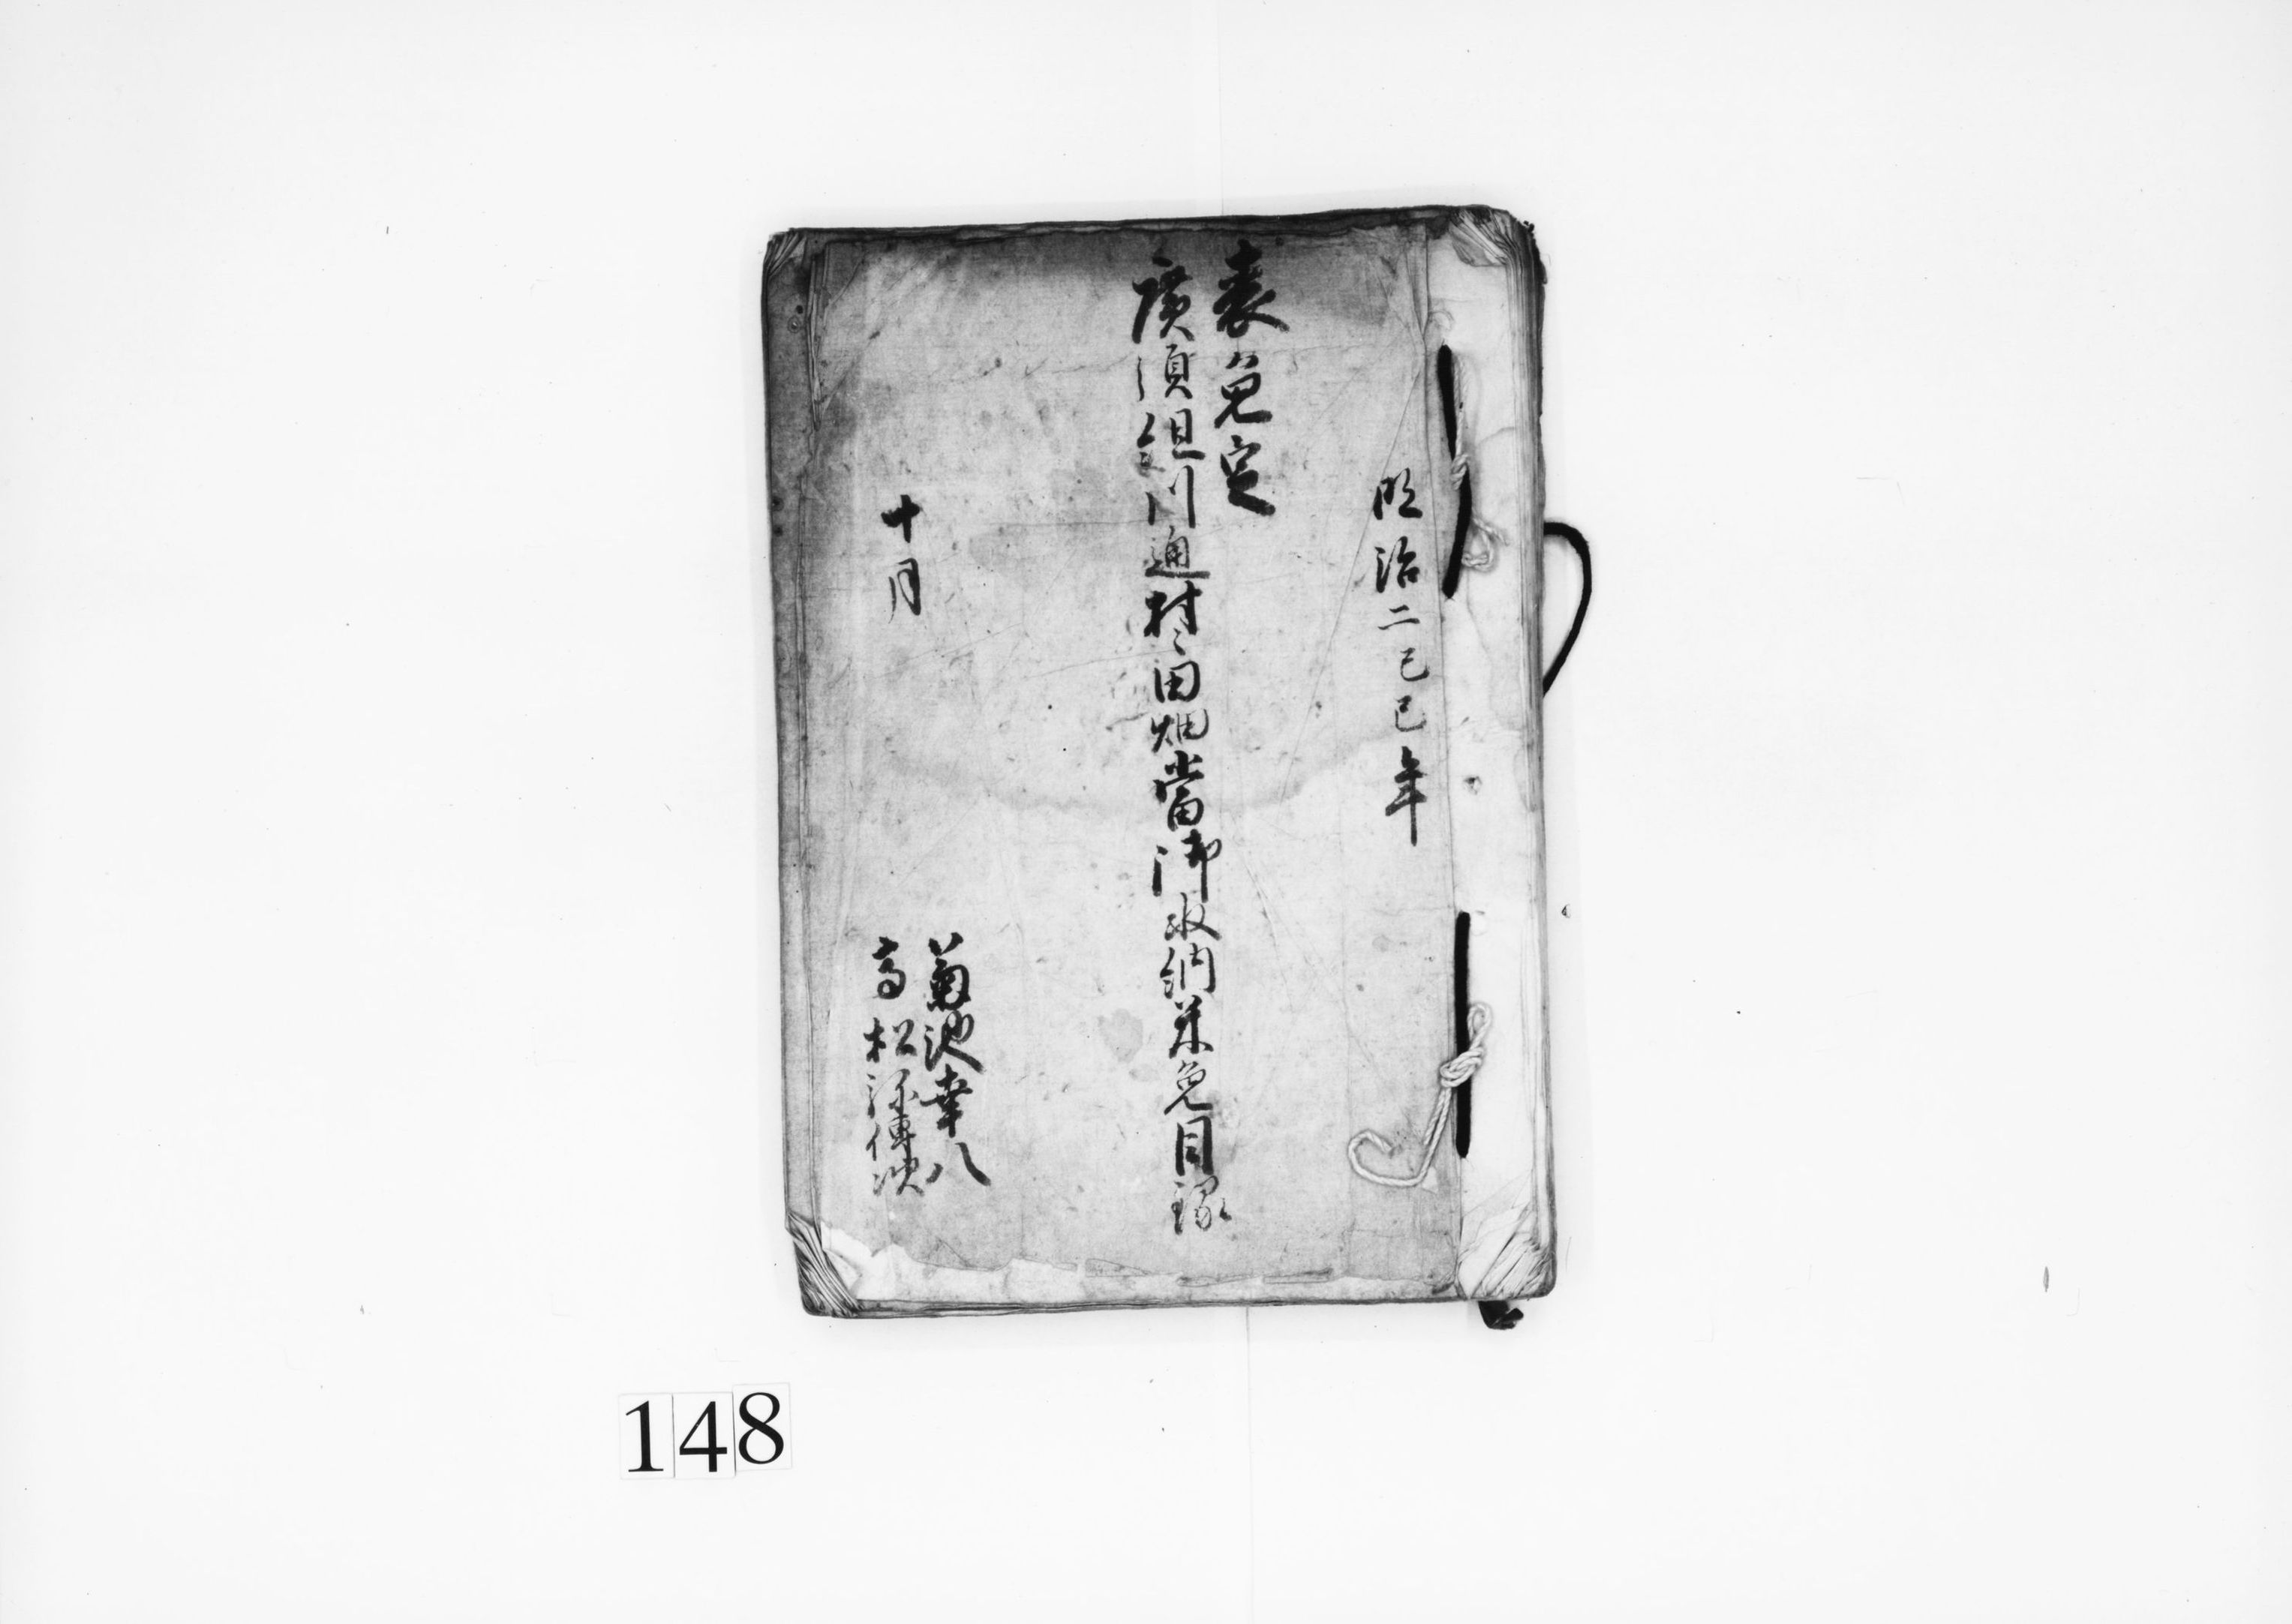 明治二己巳年
表免定
廣須組川通村々田畑當御収納米免目録
十月
菊池幸八
高松弥傳次
148